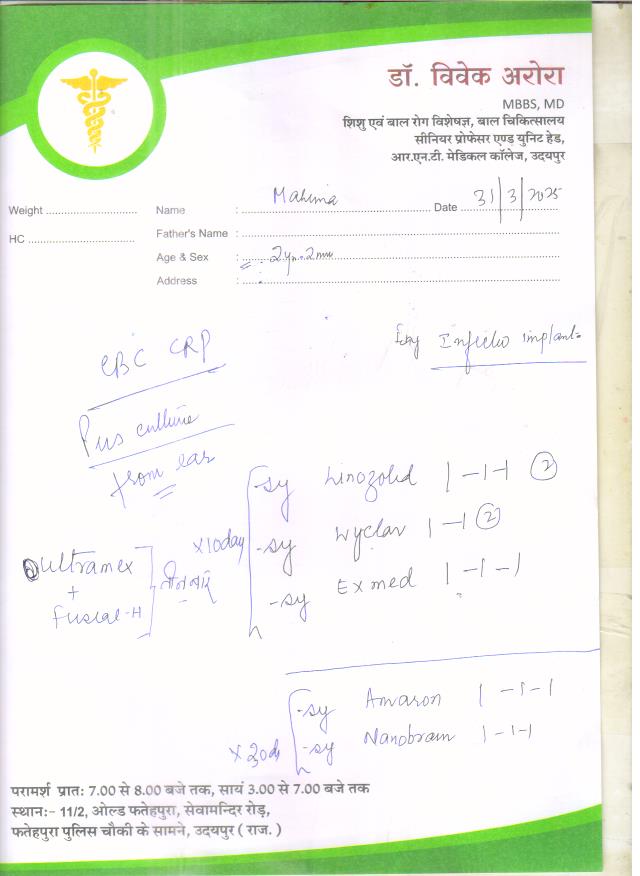 डॉ. विवेक अरोरा
MBBS, MD
शिशु एवं बाल रोग विशेषज्ञ, बाल चिकित्सालय
सीनियर प्रोफेसर एण्ड युनिट हेड,
आर.एन.टी. मेडिकल कॉलेज, उदयपुर
Weight Name : Mahima Date 31/3/2025
HC Father's Name :
Age & Sex : 2yr. 2
Address :
CBC CRP
Infectio implant
Pus culture
from ear
-sy Linozolid 1-1-1 (2)
x10day -sy Wyclav 1-1 (2)
-sy Exmed 1-1-1
ultramex
+
Fusial-H
तीन बार
-sy Amaron 1-1-1
-sy Nanobram 1-1-1
परामर्श प्रातः 7.00 से 8.00 बजे तक, सायं 3.00 से 7.00 बजे तक
स्थानः- 11/2, ओल्ड फतेहपुरा, सेवामन्दिर रोड़,
फतेहपुरा पुलिस चौकी के सामने, उदयपुर ( राज. )